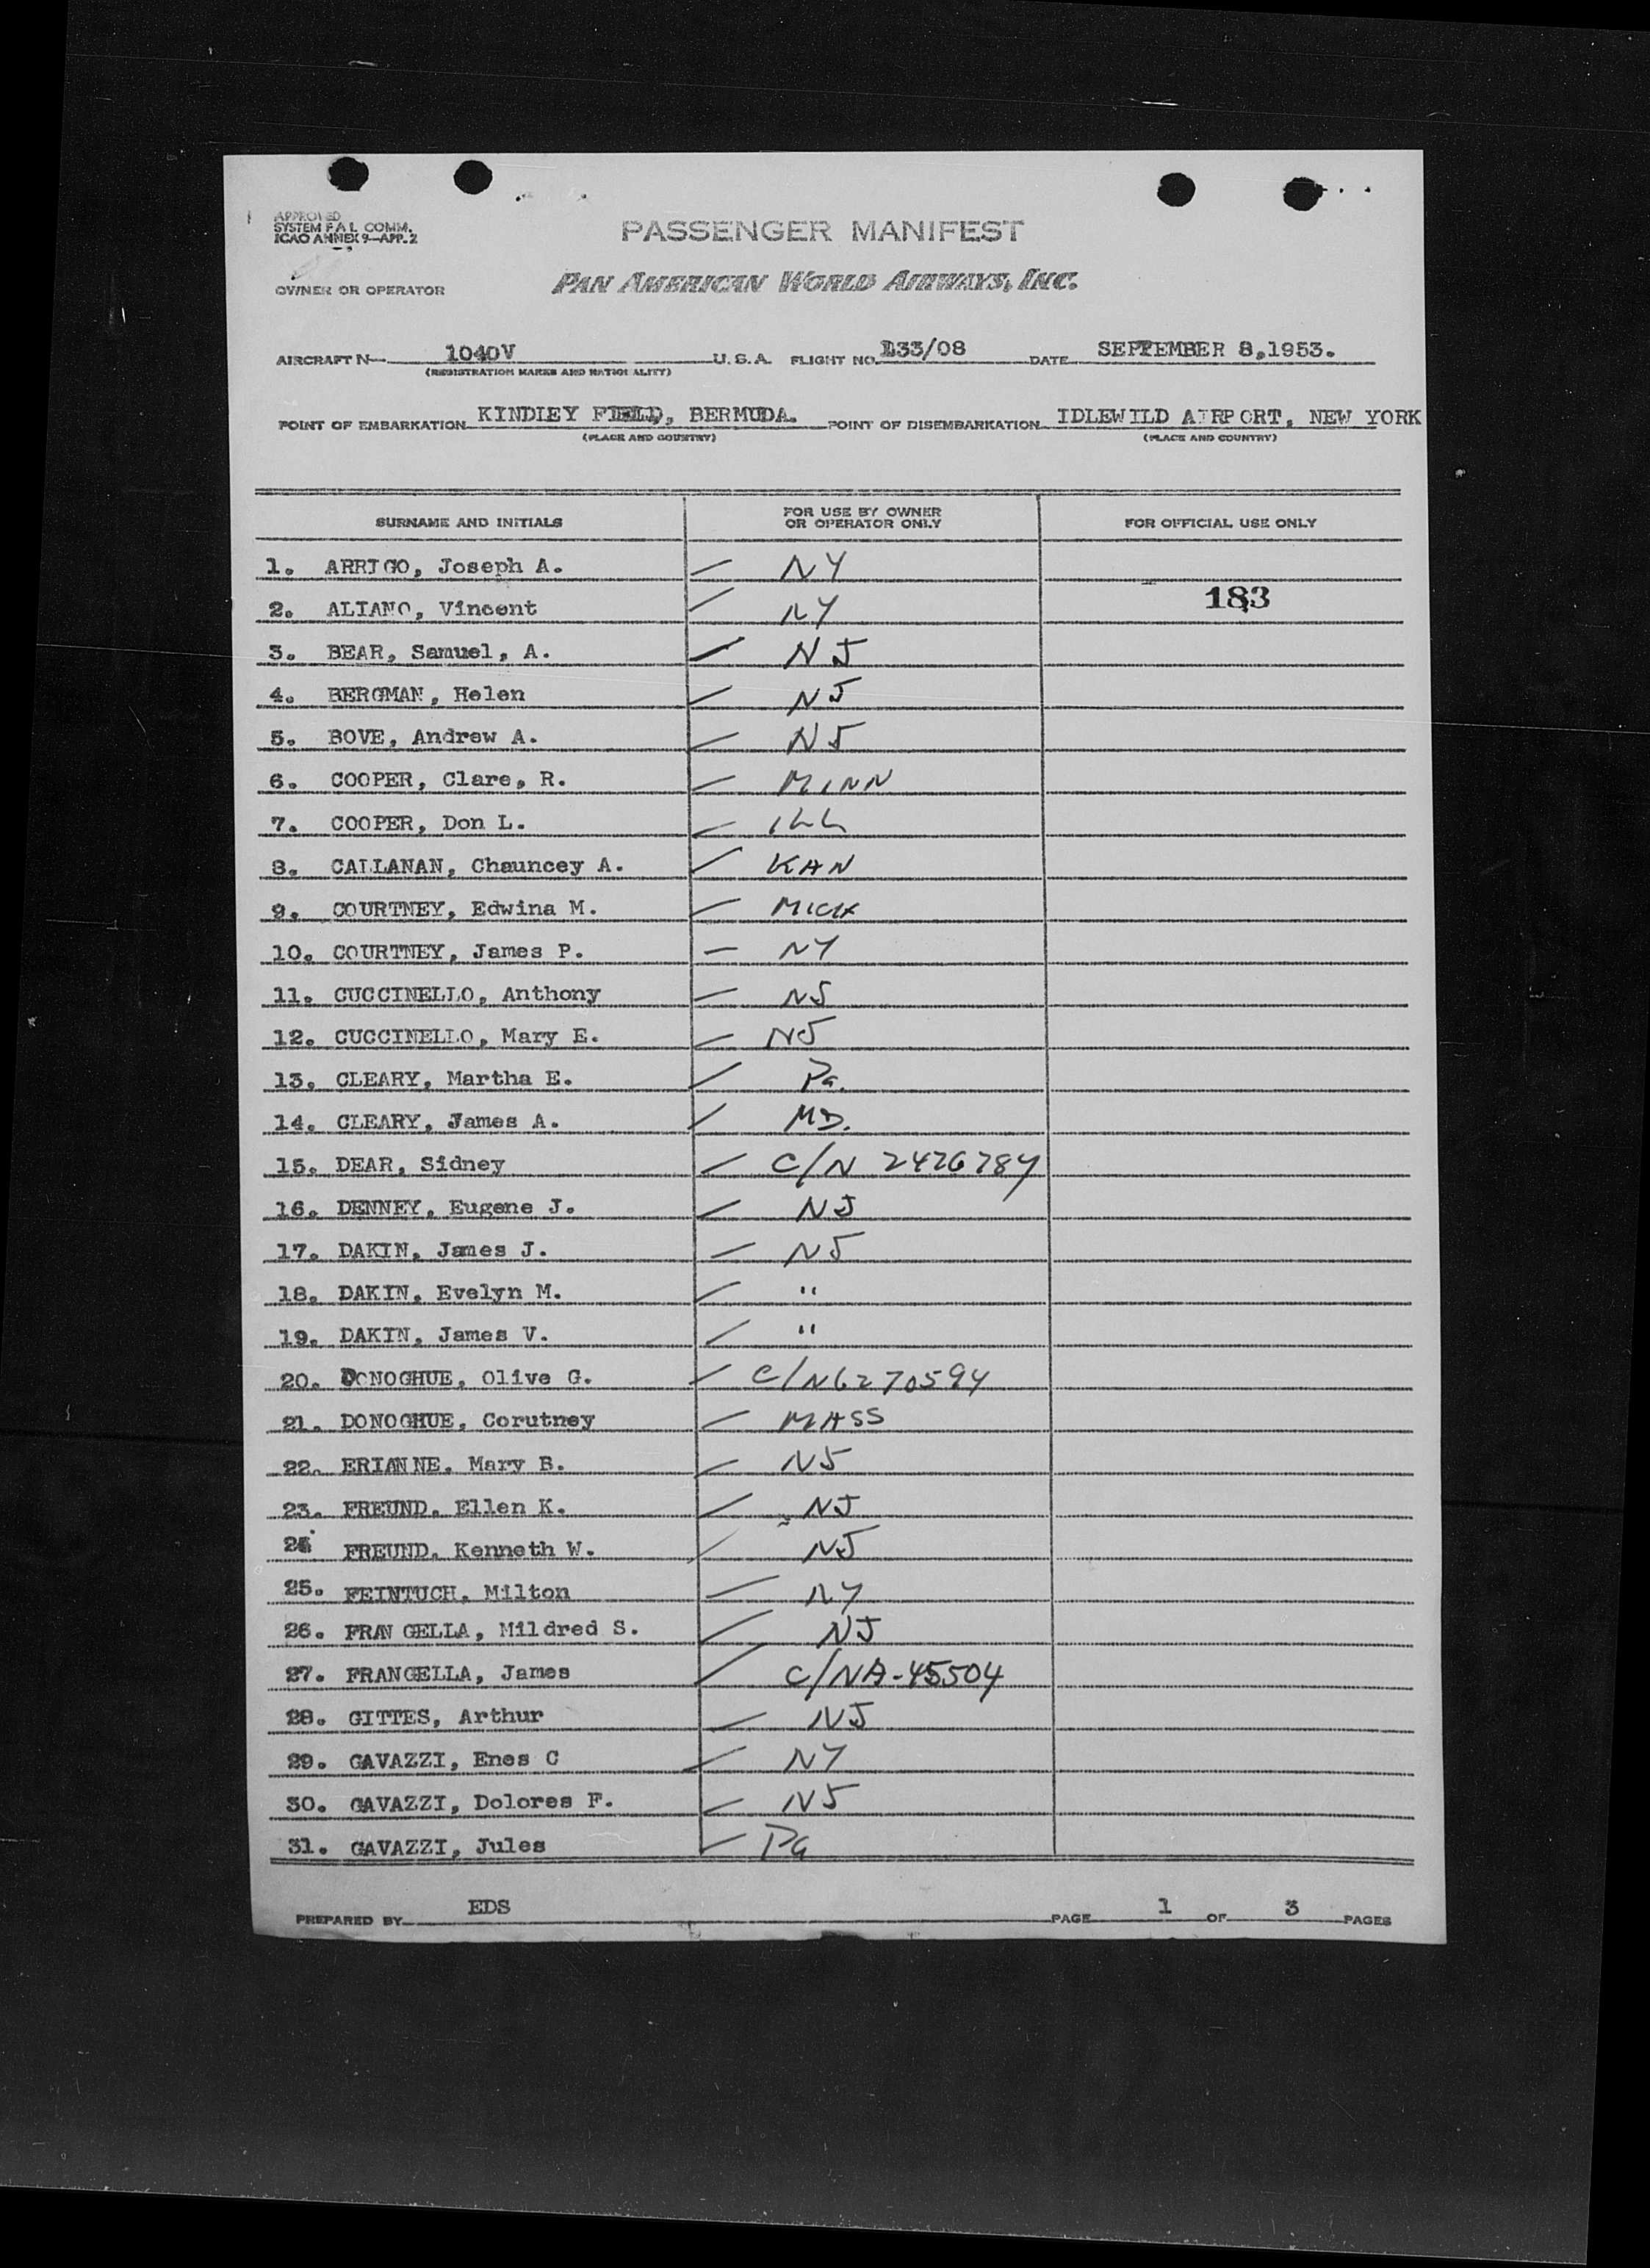 APPROVED
SYSTEM F A L COMM.
ICAO ANNEX 9-APP. 2
PASSENGER MANIFEST
OWNER OR OPERATOR PAN AMERICAN WORLD AIRWAYS, INC.
AIRCRAFT N 1040V U. S. A. FLIGHT NO. 133/08 DATE SEPTEMBER 8,1953.
(REGISTRATION MARKS AND NATIONALITY)
POINT OF EMBARKATION KINDLEY FIELD, BERMUDA. POINT OF DISEMBARKATION IDLEWILD AIRPORT, NEW YORK
(PLACE AND COUNTRY) (PLACE AND COUNTRY)
SURNAME AND INITIALS FOR USE BY OWNER OR OPERATOR ONLY FOR OFFICIAL USE ONLY
1. ARRIGO, Joseph A. NY
2. ALIANO, Vincent NY 183
3. BEAR, Samuel, A. NJ
4. BERGMAN, Helen NJ
5. BOVE, Andrew A. NJ
6. COOPER, Clare, R. MINN
7. COOPER, Don L. ILL
8. CALLANAN, Chauncey A. KAN
9. COURTNEY, Edwina M. MICH
10. COURTNEY, James P. NY
11. CUCCINELLO, Anthony NJ
12. CUCCINELLO, Mary E. NJ
13. CLEARY, Martha E. Pa.
14. CLEARY, James A. MD.
15. DEAR, Sidney C/N 2426784
16. DENNEY, Eugene J. NJ
17. DAKIN, James J. NJ
18. DAKIN, Evelyn M. "
19. DAKIN, James V. "
20. DONOGHUE, Olive G. C/N6270594
21. DONOGHUE, Corutney MASS
22. ERIANNE, Mary B. NJ
23. FREUND, Ellen K. NJ
24 FREUND, Kenneth W. NJ
25. FEINTUCH, Milton NY
26. FRANGELLA, Mildred S. NJ
27. FRANGELLA, James C/NA-45504
28. GITTES, Arthur NJ
29. GAVAZZI, Enes C NY
30. GAVAZZI, Dolores F. NJ
31. GAVAZZI, Jules Pa
PREPARED BY EDS PAGE 1 OF 3 PAGES